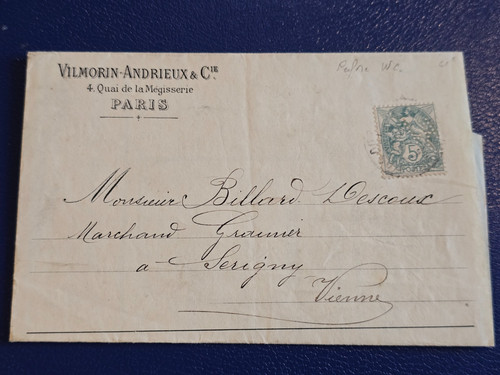 VILMORIN-ANDRIEUX & CIE
4, Quai de la Mégisserie
PARIS
5
Monsieur Billard Descoux
Marchand Grainier
à Serigny
Vienne